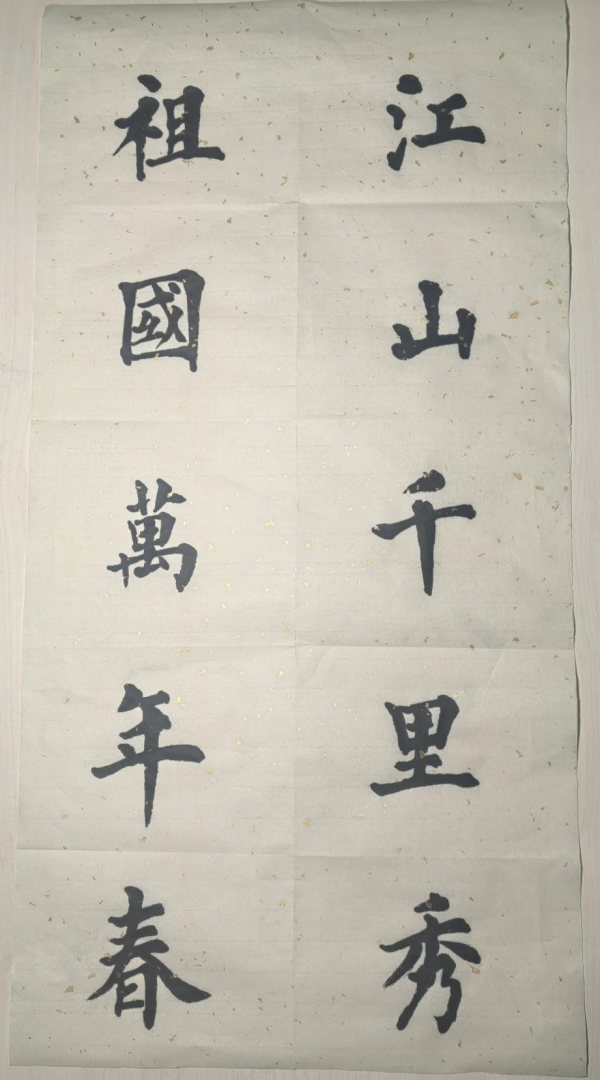 江山千里秀
祖國萬年春